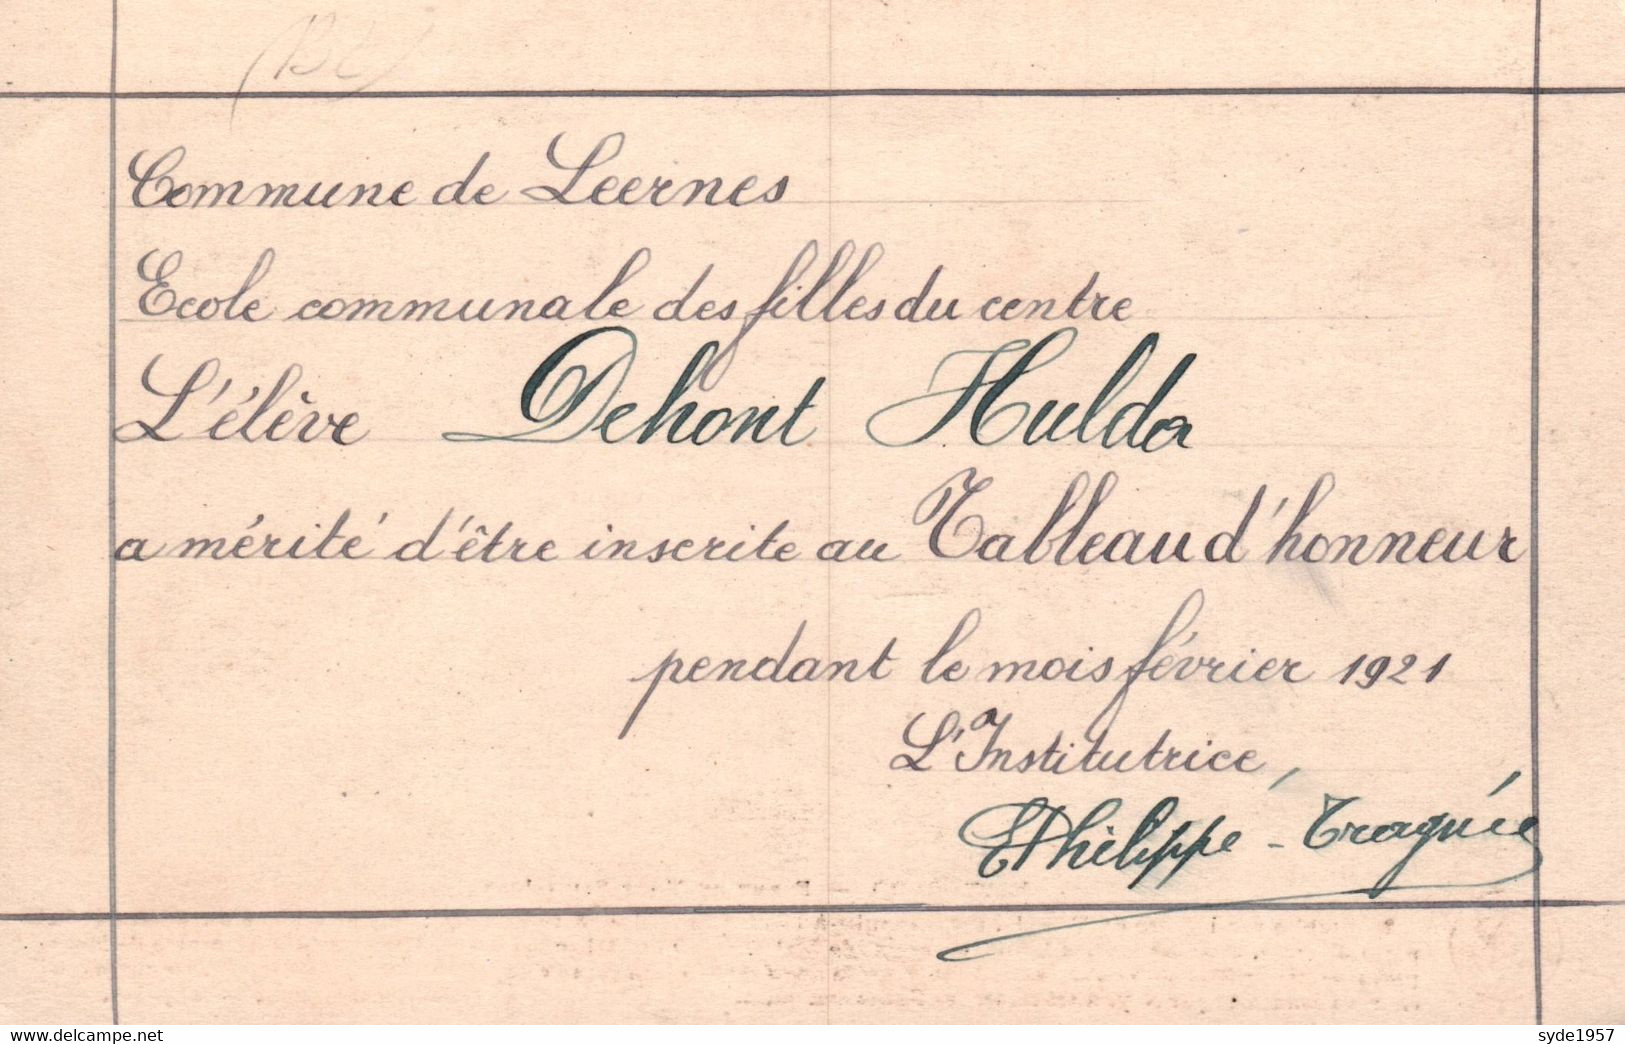 Commune de Leernes
Ecole communale des filles du centre
L'élève Dehont Hulda
a mérité d'être inscrite au Tableau d'honneur
pendant le mois février 1921
L'Institutrice,
syde1957